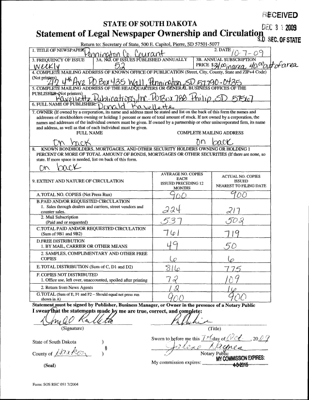 RECEIVED
DEC 3 1 2009
S.D. SEC. OF STATE
STATE OF SOUTH DAKOTA
Statement of Legal Newspaper Ownership and Circulation
Return to: Secretary of State, 500 E. Capitol, Pierre, SD 57501-5077
1. TITLE OF NEWSPAPER
Pennington Co. Courant
2. DATE
10-7-09
3. FREQUENCY OF ISSUE
weekly
3A. NO. OF ISSUES PUBLISHED ANNUALLY
52
3B. ANNUAL SUBSCRIPTION
PRICE
4. COMPLETE MAILING ADDRESS OF KNOWN OFFICE OF PUBLICATION (Street, City, County, State and ZIP+4 Code)
(Not printers)
PO Box 435 Wall, Pennington, SD 57790-0435
5. COMPLETE MAILING ADDRESS OF THE HEADQUARTERS OR GENERAL BUSINESS OFFICES OF THE
PUBLISHER
Ravellette Publications, Inc PO Box 788 Philip SD 57567
6. FULL NAME OF PUBLISHER:
Donald Ravellette
7. OWNER (If owned by a corporation, its name and address must be stated and list on the back of this form the names and
addresses of stockholders owning or holding 1 percent or more of total amount of stock. If not owned by a corporation, the
names and addresses of the individual owners must be given. If owned by a partnership or other unincorporated firm, its name
and address, as well as that of each individual must be given.
FULL NAME
COMPLETE MAILING ADDRESS
on back
on back
8. KNOWN BONDHOLDERS, MORTGAGEES, AND OTHER SECURITY HOLDERS OWNING OR HOLDING 1
PERCENT OR MORE OF TOTAL AMOUNT OF BONDS, MORTGAGES OR OTHER SECURITIES (If there are none, so
state. If more space is needed, list on back of this form.
on back
9. EXTENT AND NATURE OF CIRCULATION
AVERAGE NO. COPIES
EACH
ISSUED PRECEDING 12
MONTHS
ACTUAL NO. COPIES
ISSUED
NEAREST TO FILING DATE
A. TOTAL NO. COPIES (Net Press Run)
900
900
B. PAID AND/OR REQUESTED CIRCULATION
1. Sales through dealers and carriers, street vendors and
counter sales.
224
217
2. Mail Subscription
(Paid and or requested)
537
502
C. TOTAL PAID AND/OR REQUESTED CIRCULATION
(Sum of 9B1 and 9B2)
761
719
D. FREE DISTRIBUTION
1. BY MAIL, CARRIER OR OTHER MEANS
49
50
2. SAMPLES, COMPLIMENTARY AND OTHER FREE
COPIES
6
6
E. TOTAL DISTRIBUTION (Sum of C, D1 and D2)
816
775
F. COPIES NOT DISTRIBUTED
1. Office use, left over, unaccounted, spoiled after printing
72
109
2. Return from News Agents
12
16
G. TOTAL (Sum of E, F1 and F2 - Should equal net press run
shown in A)
900
900
Statement must be signed by Publisher, Business Manager, or Owner in the presence of a Notary Public
I swear that the statements made by me are true, correct, and complete:
(Signature)
(Title)
State of South Dakota )
County of )
Sworn to before me this 7 day of Oct, 2009
Notary Public
MY COMMISSION EXPIRES:
My commission expires:
(Seal)
Form: SOS REC 051 5/2004